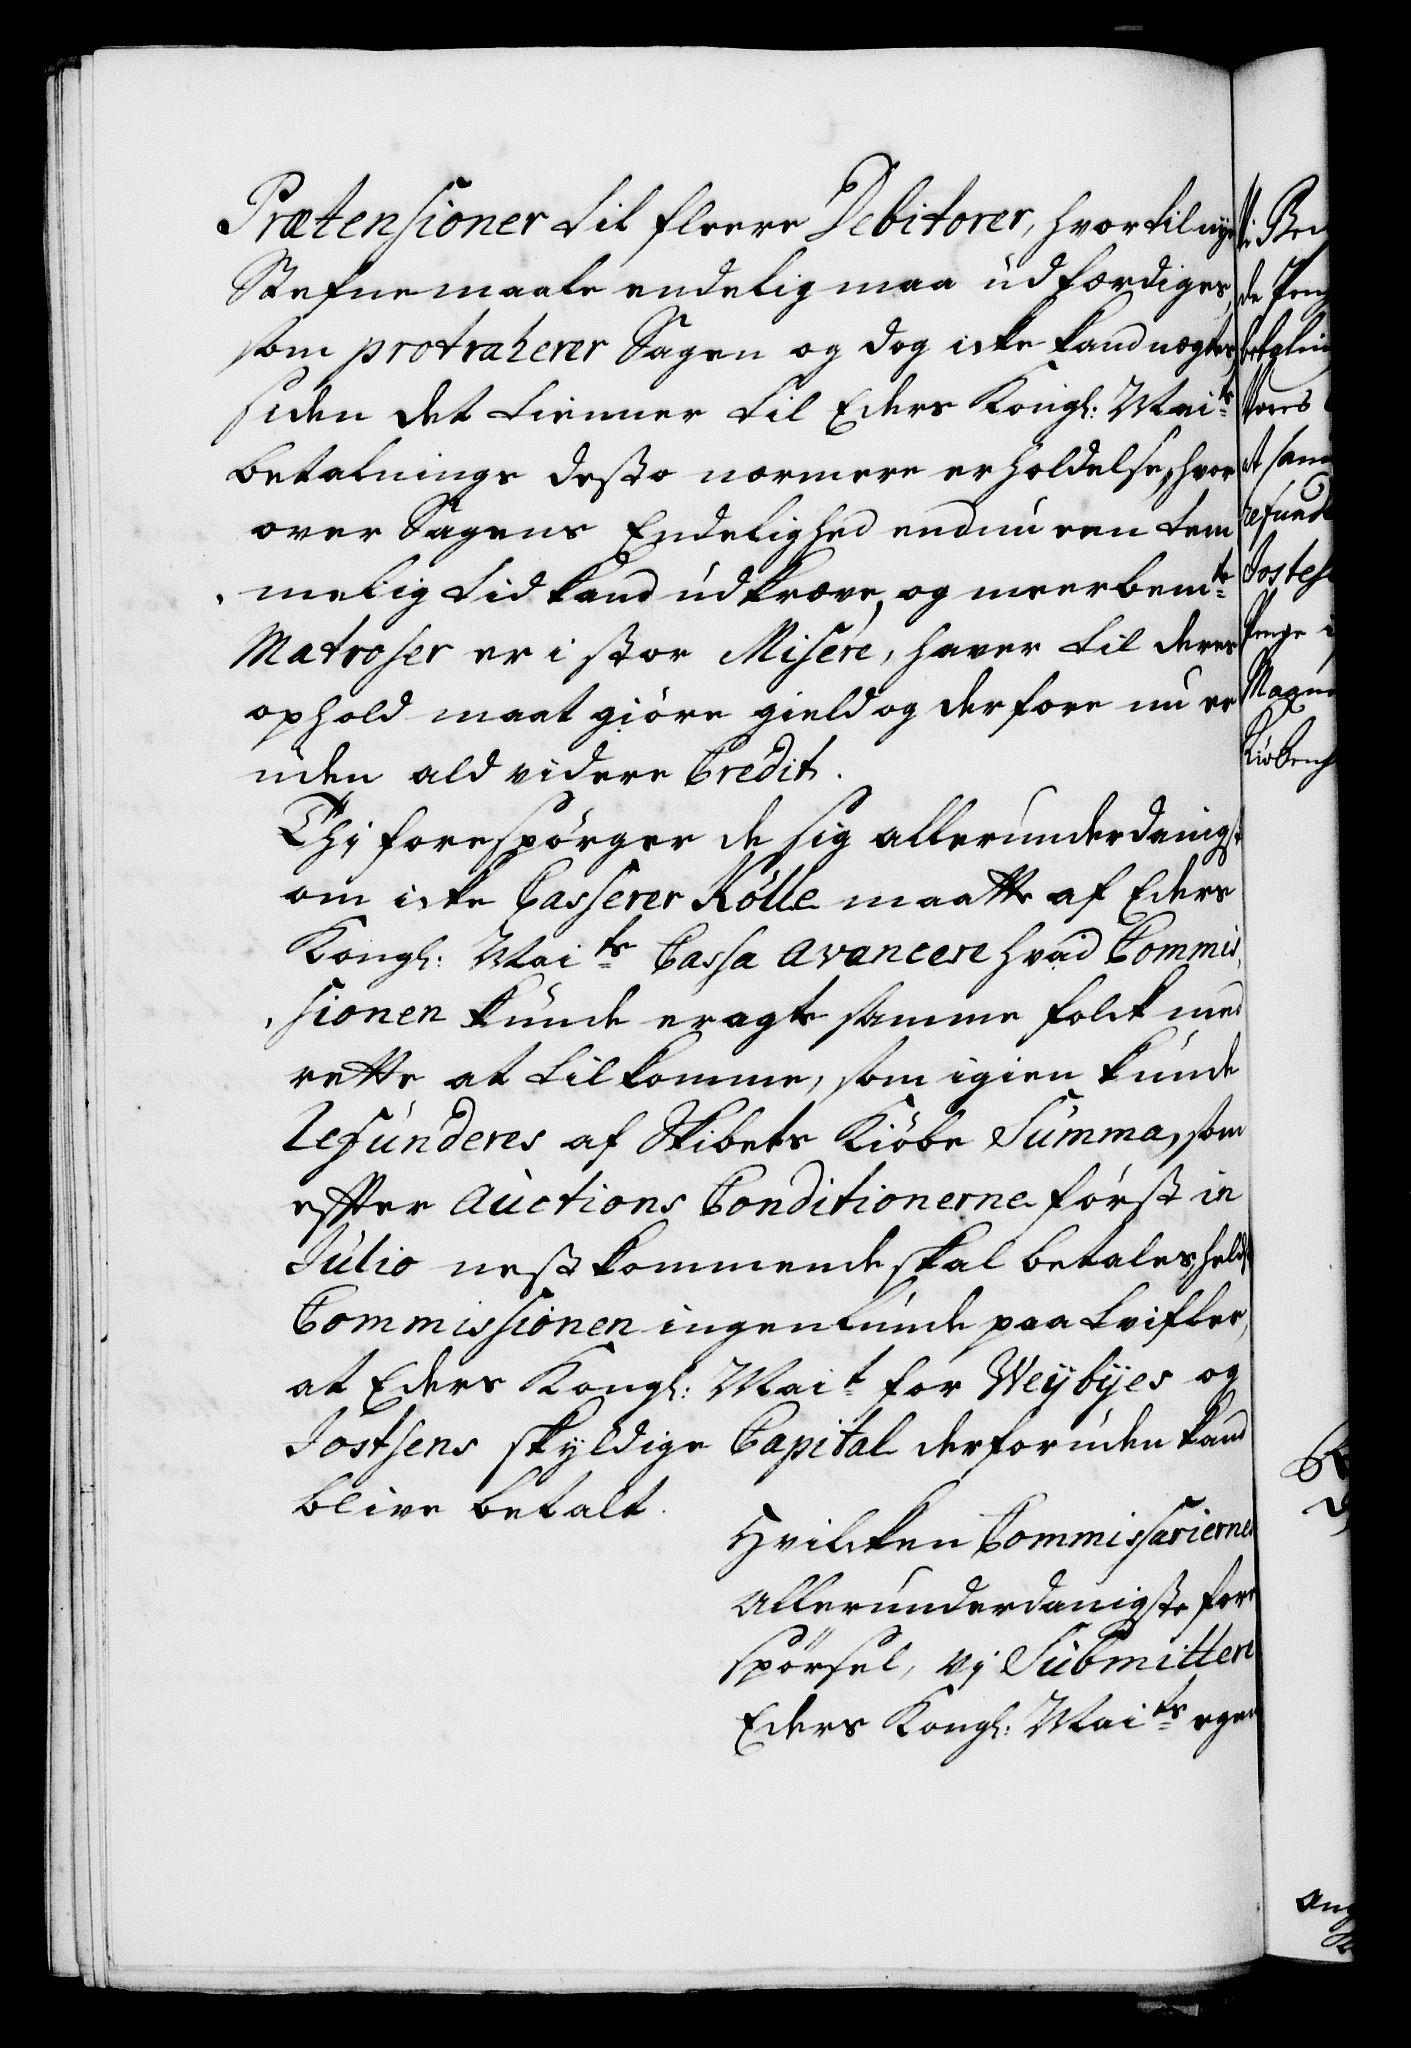 Prætensioner til fleere Debitorer, hvortil nye
Stefnemaale endelig maa udfærdiges,
som protraherer Sagen og dog icke kand nægtes,
siden det tienner til Eders Kongl: Maits
betalnings desto nærmere erholdelse, hvor
over Sagens Endelighed endnu een tem
melig tid kand udkræve, og meerbemte
Matroser er i stor Misere, haver til deres
ophold maat giöre gield og derfore nu er
uden ald videre Credit.
Thi forespörger de sig allerunderdanigst
om icke Casserer Kölle maatte af Eders
Kongl: Maits Cassa avancere hvad Commis,
,sionen kunde eragte samme folck med
rette at tilkomme, som igien kunde
refunderes af Skibets Kiöbe Summa, som
effter Auctions Conditionerne först in
Julio nestkommende skal betales, helst
Commissionen ingenlunde paa tvifler,
at Eders Kongl: Mait for Weybyes og
Jostsens skyldige Capital derforuden kand
blive betalt.
Hvilcken Commissariernes
allerunderdanigste fore
spörsel, vi Submittere
Eders Kongl: Maits egen